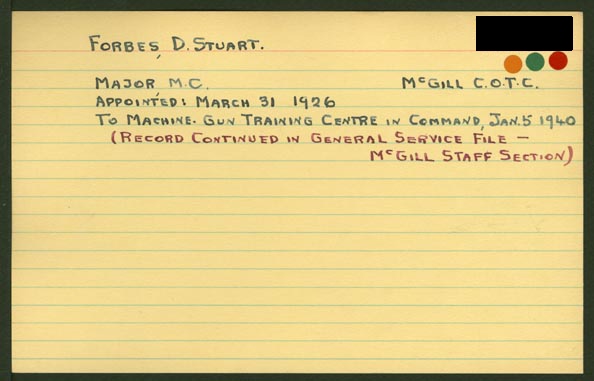 FORBES, D. STUART.
MAJOR M.C. McGILL C.O.T.C.
APPOINTED: MARCH 31 1926
TO MACHINE-GUN TRAINING CENTRE IN COMMAND, JAN. 5 1940
(RECORD CONTINUED IN GENERAL SERVICE FILE —
McGILL STAFF SECTION)